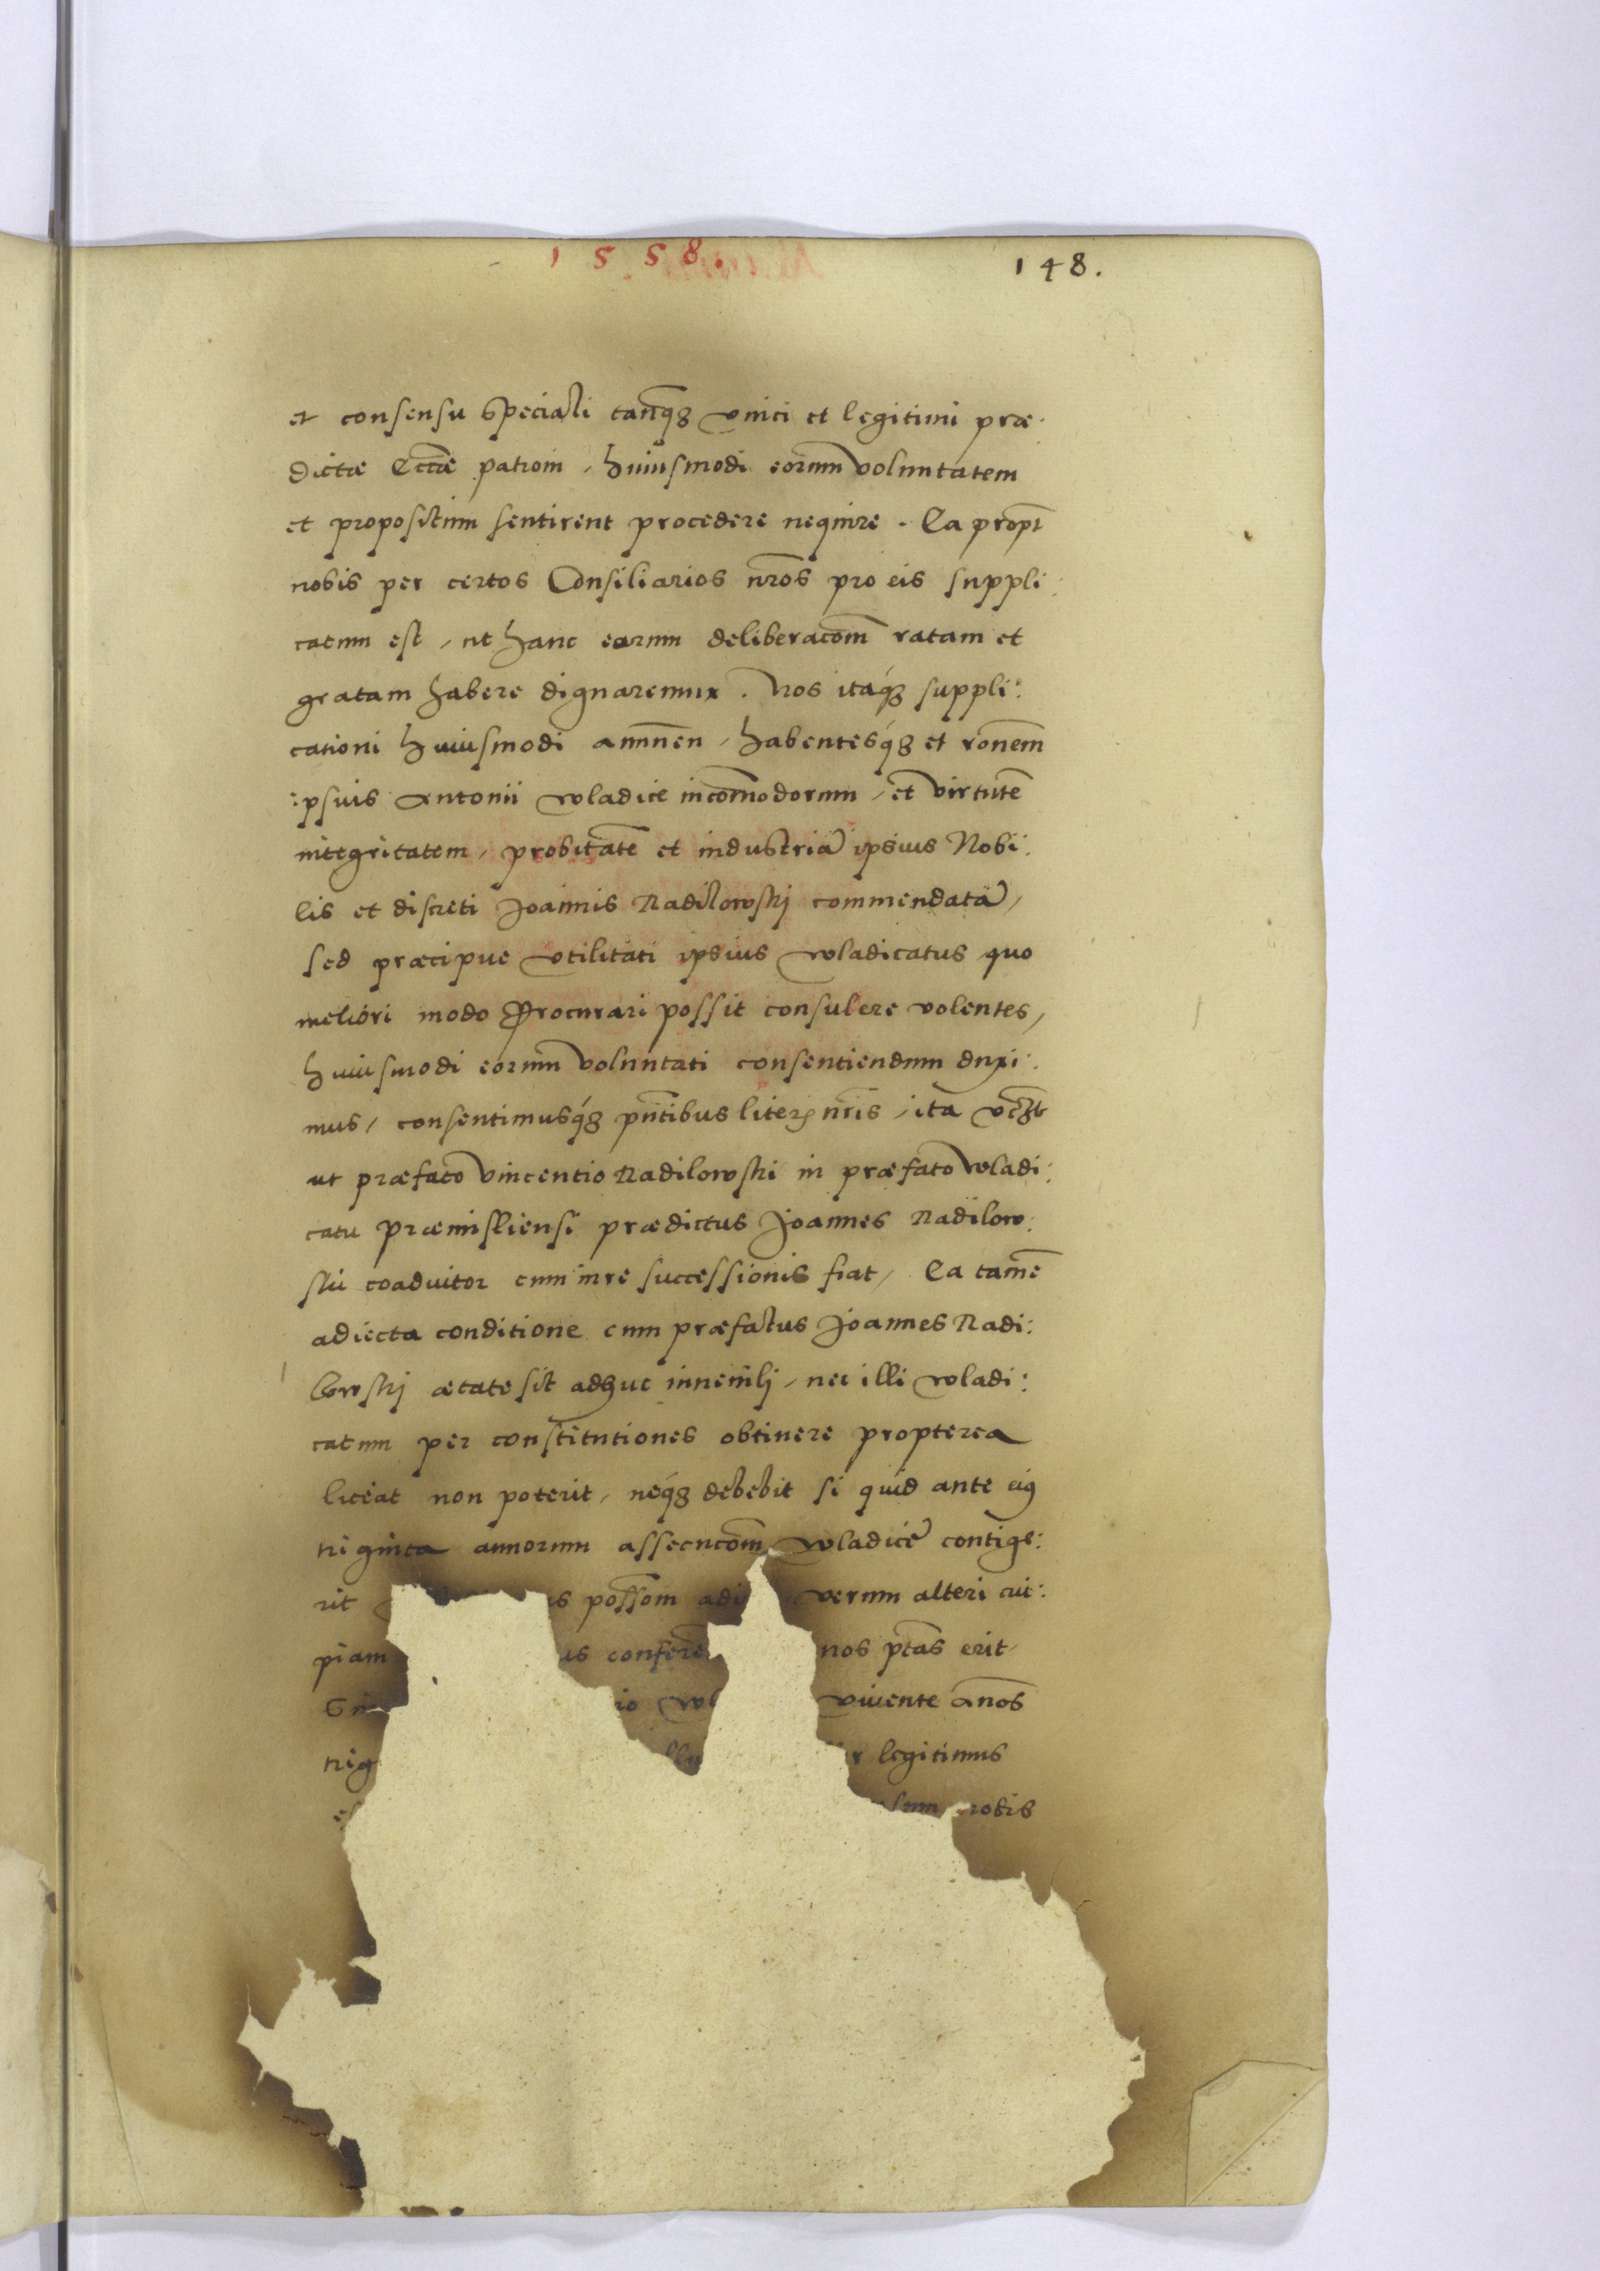 1558.
148.
et consensu speciali tanq̃ʒ vnici et legitimi præ.
dictæ Eccæ patroni, huiusmodi eorum voluntatem
et propositum sentirent procedere nequire. Ea propt
nobis per certos Consiliarios nr̃os pro eis suppli:
catum est, ut hanc earum deliberacom̃ ratam et
gratam habere dignaremur. Nos itaq́ʒ suppli:
cationi huiusmodi annuen, habentesq́ʒ et ronem̃
:psius Antonii vladice incom̃odorum, et virtutẽ
integritatem, probitatẽ et industriã ipsius Nobi:
lis et discreti Joannis Radilowskj commendatã,
sed præcipue vtilitati ipsius vladicatus quo
meliori modo procurari possit consulere volentes,
huiusmodi eorum voluntati consentiendum duxi:
mus, consentimusq́ʒ pñtibus literis nr̃is, ita
ut præfato Vincentio Radilowski in præfato vladi:
catu Præmisliensi prædictus Joannes Radilow:
ski coadiutor cum iure successionis fiat, Ea tamẽ
adiecta conditione cum præfatus Joannes Radi:
lowskj ætate sit adhuc iuuenilj, nec illi vladi:
catum per constitutiones obtinere propterea
liceat non poterit, neq́ʒ debebit si quid ante eiꝰ
triginta annorum assecucom̃ vladicẽ contige:
rit is possom̃ adi verum alteri cui:
piam is conferẽ nos ptãs erit
io vl viuente annos
trig legitimus
nobis